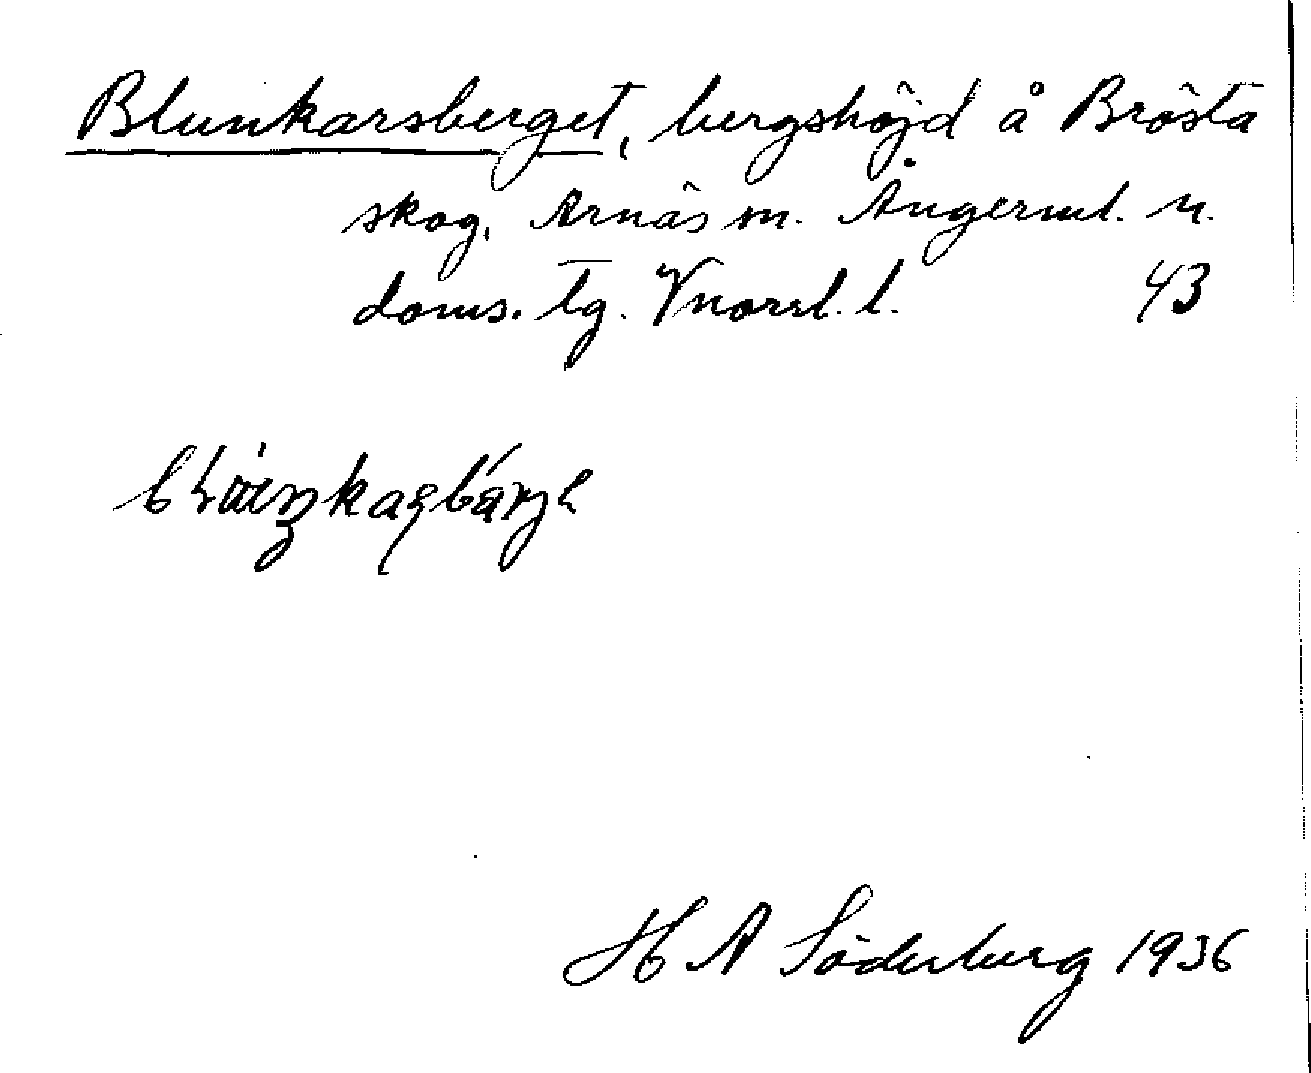 Blunkarsberget, bergshöjd å Brösta
skog, Arnäs sn. Ångerml. n.
doms. tg. Vnorrl. l. 43
H A Söderberg 1936